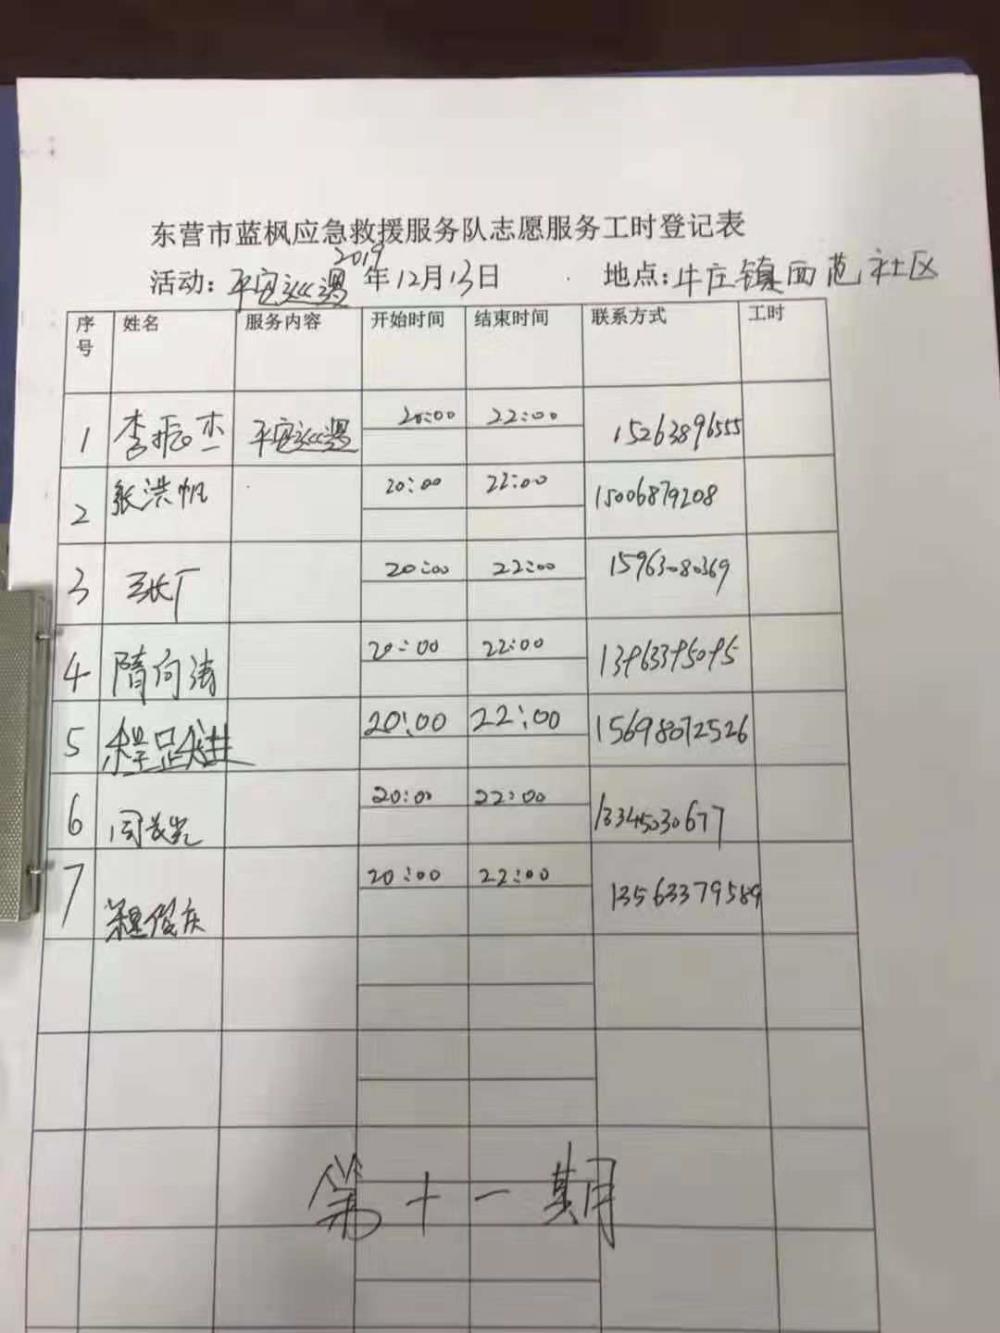 东营市蓝枫应急救援服务队志愿服务工时登记表
活动：平安巡逻 2019年12月13日 地点：牛庄镇西范社区
序号 姓名 服务内容 开始时间 结束时间 联系方式 工时
1 李振杰 平安巡逻 20:00 22:00 15263896555
2 张洪帆 20:00 22:00 15006879208
3 20:00 22:00 15963080369
4 隋向涛 20:00 22:00 13963395095
5 20:00 22:00 15698072526
6 20:00 22:00 13345030677
7 20:00 22:00 13563379589
第十一期